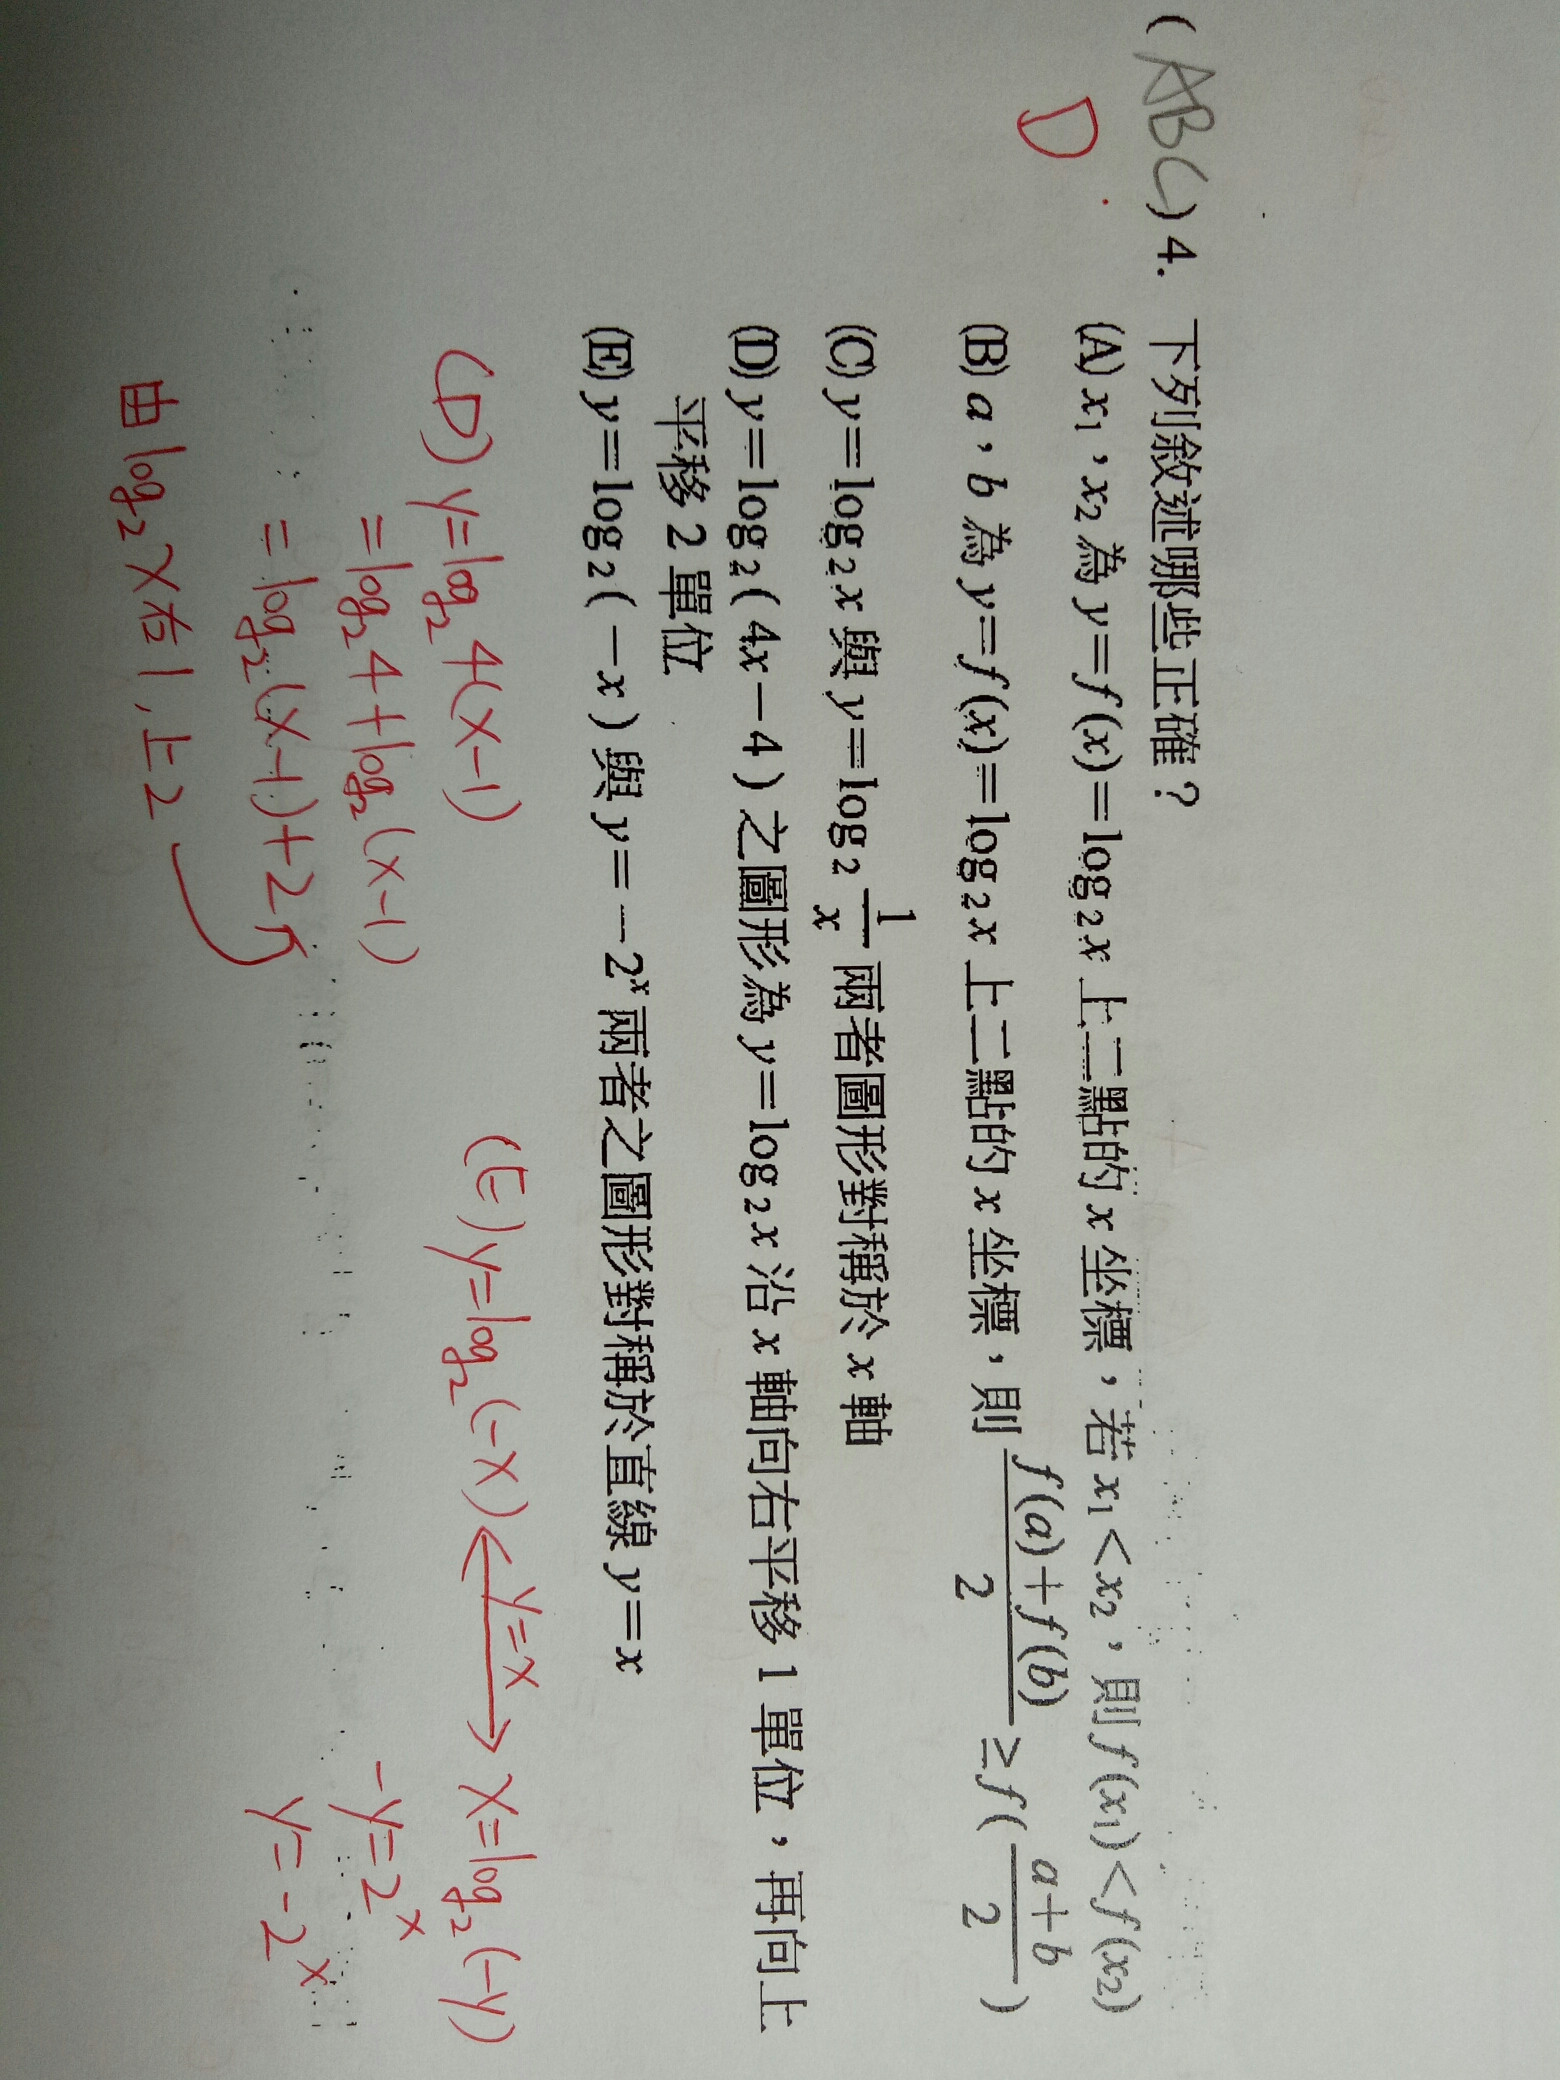 (ABC) 4. 下列敘述哪些正確？
D
(A) x₁，x₂ 為 y＝f(x)＝log₂x 上二點的 x 坐標，若 x₁＜x₂，則 f(x₁)＜f(x₂)
(B) a，b 為 y＝f(x)＝log₂x 上二點的 x 坐標，則 \frac{f(a)+f(b)}{2} ≥ f(\frac{a+b}{2})
(C) y＝log₂x 與 y＝log₂\frac{1}{x} 兩者圖形對稱於 x 軸
(D) y＝log₂(4x－4) 之圖形為 y＝log₂x 沿 x 軸向右平移 1 單位，再向上
平移 2 單位
(E) y＝log₂(－x) 與 y＝－2ˣ 兩者之圖形對稱於直線 y＝x
(D) y=log₂4(x-1)
=log₂4+log₂(x-1)
=log₂(x-1)+2
由log₂x右1,上2
(E) y=log₂(-x) ←y=x→ x=log₂(-y)
-y=2ˣ
y=-2ˣ